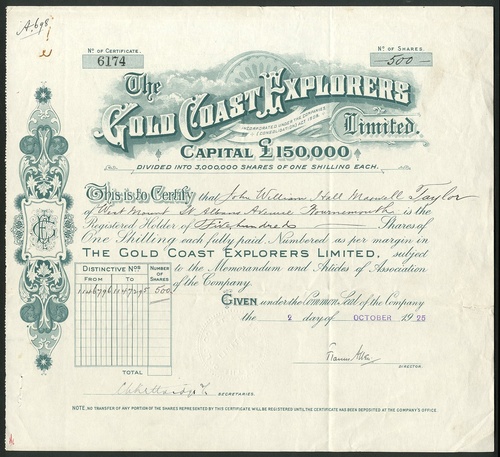 A.698
No OF CERTIFICATE.
6174
No OF SHARES.
500
The
GOLD COAST EXPLORERS
INCORPORATED UNDER THE COMPANIES
(CONSOLIDATION) ACT 1908.
Limited.
CAPITAL £150,000
DIVIDED INTO 3,000,000 SHARES OF ONE SHILLING EACH.
This is to Certify that John William Hall Maxwell Taylor
of Mount St Albans Avenue Bournemouth is the
Registered Holder of Five hundred Shares of
One Shilling each fully paid. Numbered as per margin in
THE GOLD COAST EXPLORERS LIMITED, subject
to the Memorandum and Articles of Association
of the Company.
DISTINCTIVE Nos
NUMBER OF SHARES
FROM TO
500
TOTAL
GIVEN under the Common Seal of the Company
the 2 day of OCTOBER 1925
DIRECTOR.
SECRETARIES.
NOTE. NO TRANSFER OF ANY PORTION OF THE SHARES REPRESENTED BY THIS CERTIFICATE WILL BE REGISTERED UNTIL THE CERTIFICATE HAS BEEN DEPOSITED AT THE COMPANY'S OFFICE.